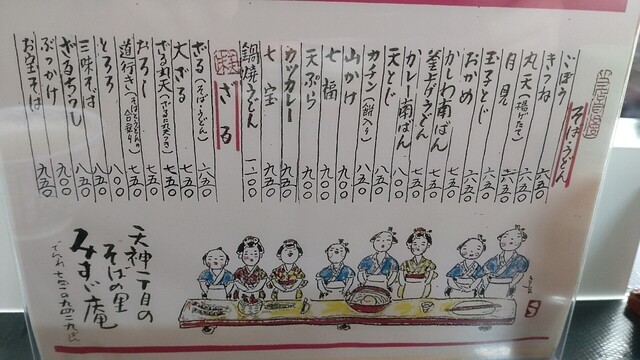 そば・うどん
ごぼう 六五〇
きつね 六五〇
丸天(揚げたて) 六五〇
月見 六五〇
玉子とじ 六五〇
おかめ 七五〇
かしわ南ばん 七五〇
釜上げうどん 七五〇
カレー南ばん 八〇〇
天とじ 八五〇
カチン(餅入り) 八五〇
山かけ 九〇〇
七福 九〇〇
天ぷら 九〇〇
カツカレー 九五〇
七宝 九五〇
鍋焼うどん 一二〇〇
美味
ざる
ざる(そば・うどん) 六五〇
大ざる 七五〇
ざる丸天 七五〇
おろし 七五〇
道行き(そばとうどんの合盛り) 七五〇
とろろ 八〇〇
三味そば 八五〇
ざるちらし 八五〇
ぶっかけ 九〇〇
お宝そば 九五〇
天神一丁目の
そばの里
みすゞ庵